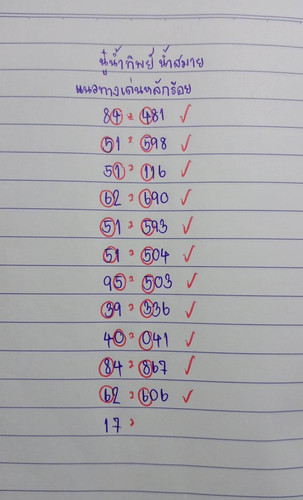 ปู่น้ำทิพย์ น้ำสมาย
แนวทางเด่นหลักร้อย
84 = 481 ✓
51 = 598 ✓
51 = 116 ✓
62 = 690 ✓
51 = 593 ✓
51 = 504 ✓
95 = 503 ✓
39 = 336 ✓
40 = 041 ✓
84 = 867 ✓
62 = 606 ✓
17 =